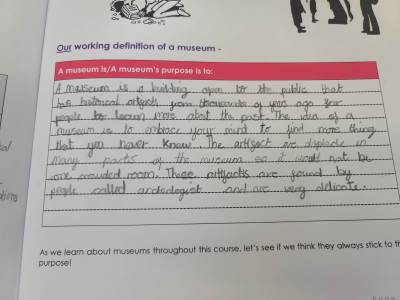 Our working definition of a museum -
A museum is/A museum's purpose is to:
A museum is a building open to the public that
has historical artifacts from thousands of years ago for
people to learn more about the past. The idea of a
museum is to embrace your mind to find more thing
that you never knew. The artifact are displacie in
many parts of the museum so it would not be
one crowded room. These artifacts are found by
people called archeologist and are very oldicate.
As we learn about museums throughout this course, let's see if we think they always stick to th
purpose!